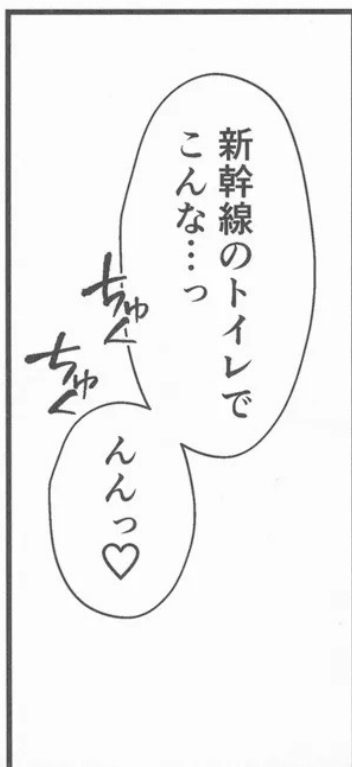 新幹線のトイレで
こんな…っ
ちゅく
ちゅく
んんっ♡